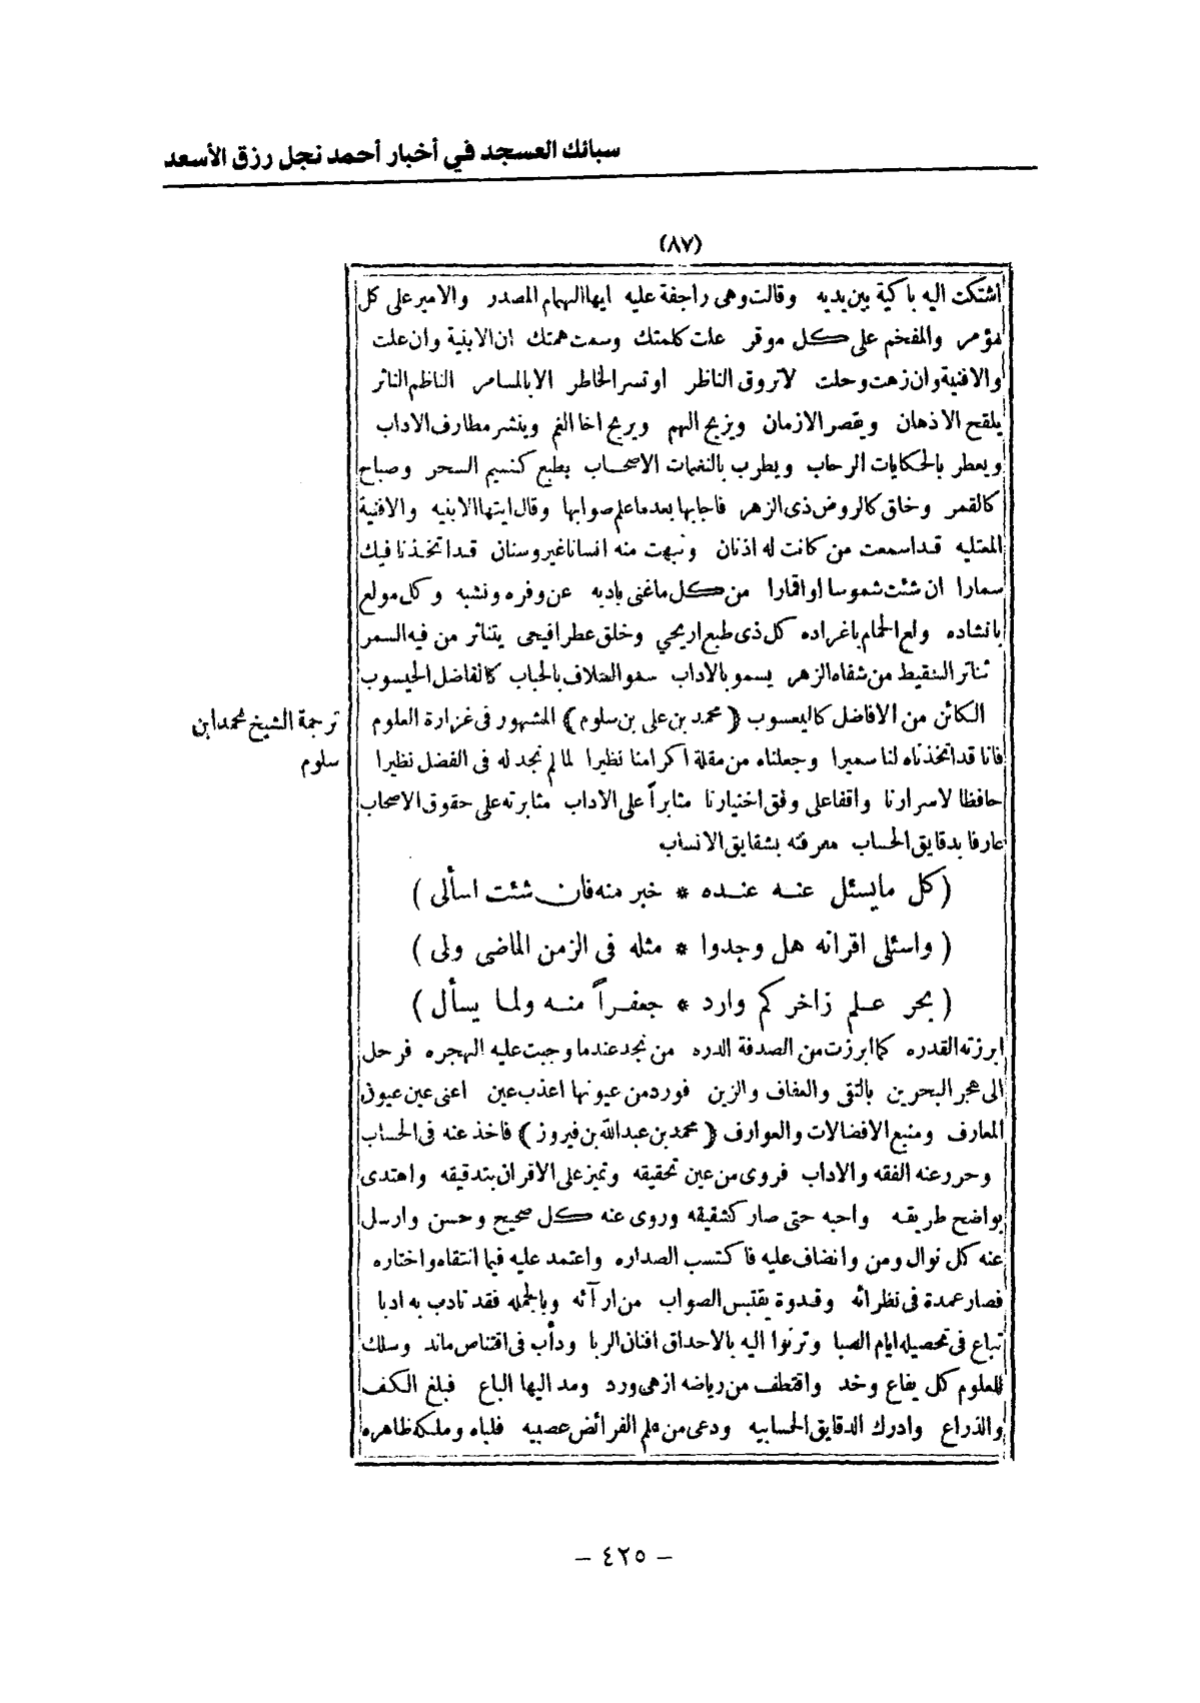 سبائك العسجد في أخبار أحمد نجل رزق الأسعد
(٨٧)
اشتكت اليه باكية بين يديه وقالت وهى راجفة عليه ايها الهمام المصدر والامير على كل
مؤمر والمفخم على كل موقر علت كلمتك وسمت همتك ان الابنية وان علت
والافنية وان زهت وحلت لا تروق الناظر او تسر الخاطر الا بالمسامر الناظم الناثر
يلقح الاذهان ويقصر الازمان ويزيح الهم ويريح اخا الغم وينشر مطارف الاداب
ويعطر بالحكايات الرحاب ويطرب بالنغمات الاصحاب بطبع كنسيم السحر وصباح
كالقمر وخلق كالروض ذى الزهر فاجابها بعد ما علم صوابها وقال ايتها الابنيه والافنية
المعتليه قد اسمعت من كانت له اذنان ونبهت منه انسانا غير وسنان قد اتخذنا فيك
سمارا ان شئت شموسا او اقمارا من كل ماغنى بادبه عن وفره ونشبه وكل مولع
بانشاده ولع الحمام باغراده كل ذى طبع اريحي وخلق عطر افيحى يتناثر من فيه السمر
تناثر السقيط من شفاه الزهر يسمو بالاداب سمو السلاف بالحباب كالفاضل الحيسوب
الكائن من الافاضل كاليعسوب (محمد بن على بن سلوم) المشهور فى غزارة العلوم
ترجمة الشيخ محمد ابن
سلوم
فانا قد اتخذناه لنا سميرا وجعلناه من مقلة اكرامنا نظيرا لما لم نجد له فى الفضل نظيرا
حافظا لاسرارنا واقفا على وفق اختيارنا مثابراً على الاداب مثابرته على حقوق الاصحاب
عارفا بدقايق الحساب معرفته بشقايق الانساب
(كل مايسئل عنه عنده * خبر منه فان شئت اسألى)
(واسئلى اقرانه هل وجدوا * مثله فى الزمن الماضى ولى)
(بحر علم زاخر كم وارد * جعفراً منه ولما يسأل)
ابرزته القدره كما ابرزت من الصدفة الدره من نجد عندما وجبت عليه الهجره فرحل
الى هجر البحرين بالتقى والعفاف والزين فورد من عيونها اعذب عين اعنى عين عيون
المعارف ومنبع الافضالات والعوارف (محمد بن عبدالله بن فيروز) فاخذ عنه فى الحساب
وحرر عنه الفقه والاداب فروى من عين تحقيقه وتميز على الاقران بتدقيقه واهتدى
بواضح طريقه واحبه حتى صار كشقيقه وروى عنه كل صحيح وحسن وارسل
عنه كل نوال ومن وانضاف عليه فاكتسب الصداره واعتمد عليه فيما انتقاه واختاره
فصار عمدة فى نظرائه وقدوة يقتبس الصواب من ارآئه وبالجمله فقد تادب به ادبا
تباع فى تحصيله ايام الصبا وترنوا اليه بالاحداق افنان الربا ودأب فى اقتناص ماند وسلك
للعلوم كل يفاع وخد واقتطف من رياضه ازهى ورد ومد اليها الباع فبلغ الكف
والذراع وادرك الدقايق الحسابيه ودعى من علم الفرائض عصيه فلباه وملكه ظاهره
– ٤٢٥ –